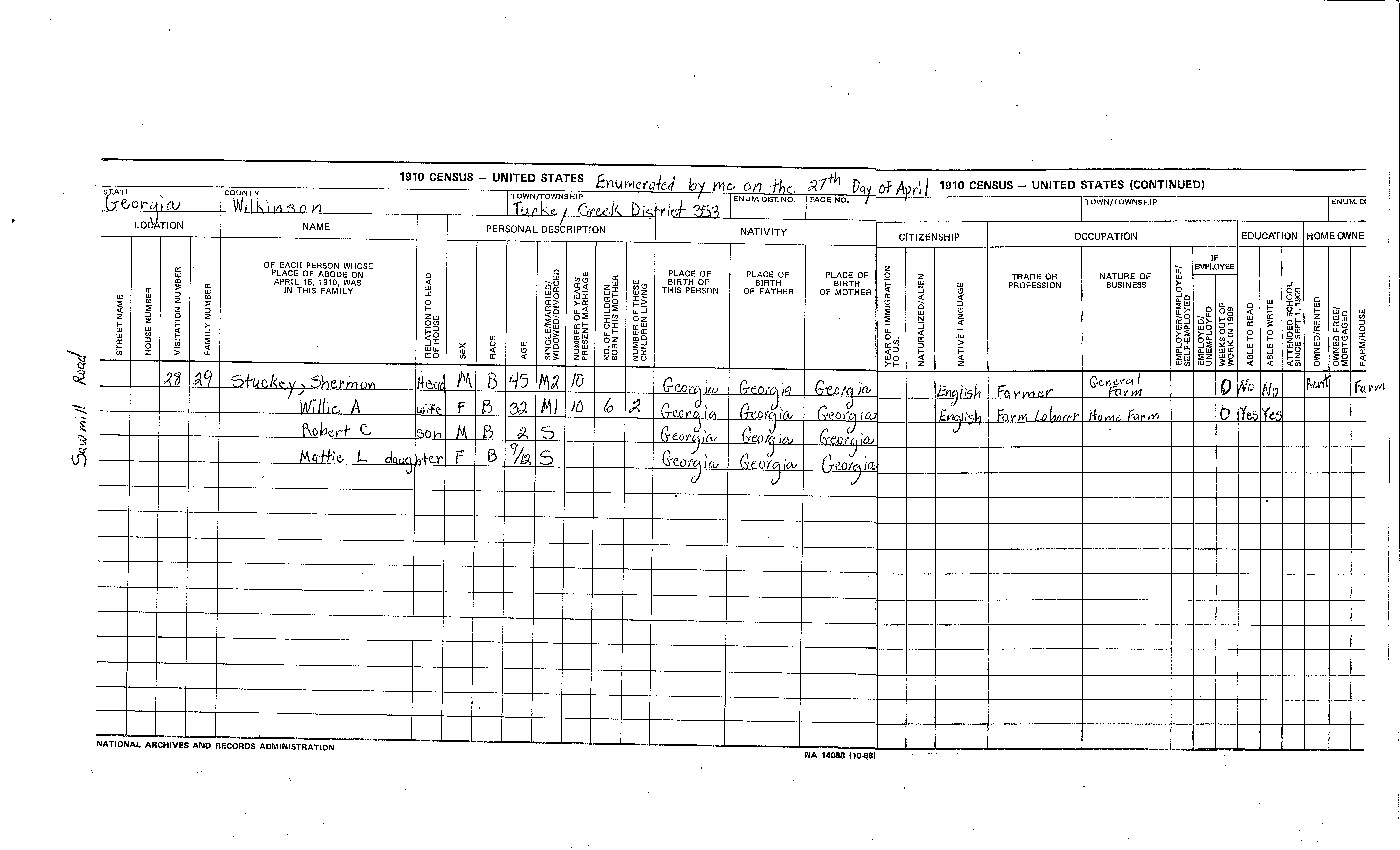 1910 CENSUS – UNITED STATES Enumerated by me on the 27th Day of April 1910 CENSUS – UNITED STATES (CONTINUED)
STATE COUNTY TOWN/TOWNSHIP ENUM. DIST. NO. PAGE NO. TOWN/TOWNSHIP ENUM. DI
Georgia Wilkinson Turkey Creek District 353
LOCATION NAME PERSONAL DESCRIPTION NATIVITY CITIZENSHIP OCCUPATION EDUCATION HOME OWNE
STREET NAME
HOUSE NUMBER
VISITATION NUMBER
FAMILY NUMBER
OF EACH PERSON WHOSE
PLACE OF ABODE ON
APRIL 15, 1910, WAS
IN THIS FAMILY
RELATION TO HEAD
OF HOUSE
SEX
RACE
AGE
SINGLE/MARRIED/
WIDOWED/DIVORCED
NUMBER OF YEARS
PRESENT MARRIAGE
NO. OF CHILDREN
BORN THIS MOTHER
NUMBER OF THESE
CHILDREN LIVING
PLACE OF
BIRTH OF
THIS PERSON
PLACE OF
BIRTH
OF FATHER
PLACE OF
BIRTH
OF MOTHER
YEAR OF IMMIGRATION
TO U.S.
NATURALIZED/ALIEN
NATIVE LANGUAGE
TRADE OR
PROFESSION
NATURE OF
BUSINESS
EMPLOYER/EMPLOYEE/
SELF-EMPLOYED
IF
EMPLOYEE
EMPLOYED/
UNEMPLOYED
WEEKS OUT OF
WORK IN 1909
ABLE TO READ
ABLE TO WRITE
ATTENDED SCHOOL
SINCE SEPT 1, 1909
OWNED/RENTED
OWNED FREE/
MORTGAGED
FARM/HOUSE
Sawmill Road
28 29 Stuckey, Sherman Head M B 45 M2 10 Georgia Georgia Georgia English Farmer General Farm 0 No No Rent Farm
Willie A wife F B 32 M1 10 6 2 Georgia Georgia Georgia English Farm Laborer Home Farm 0 Yes Yes
Robert C son M B 2 S Georgia Georgia Georgia
Mattie L daughter F B 9/12 S Georgia Georgia Georgia
NATIONAL ARCHIVES AND RECORDS ADMINISTRATION
NA 14088 (10-86)